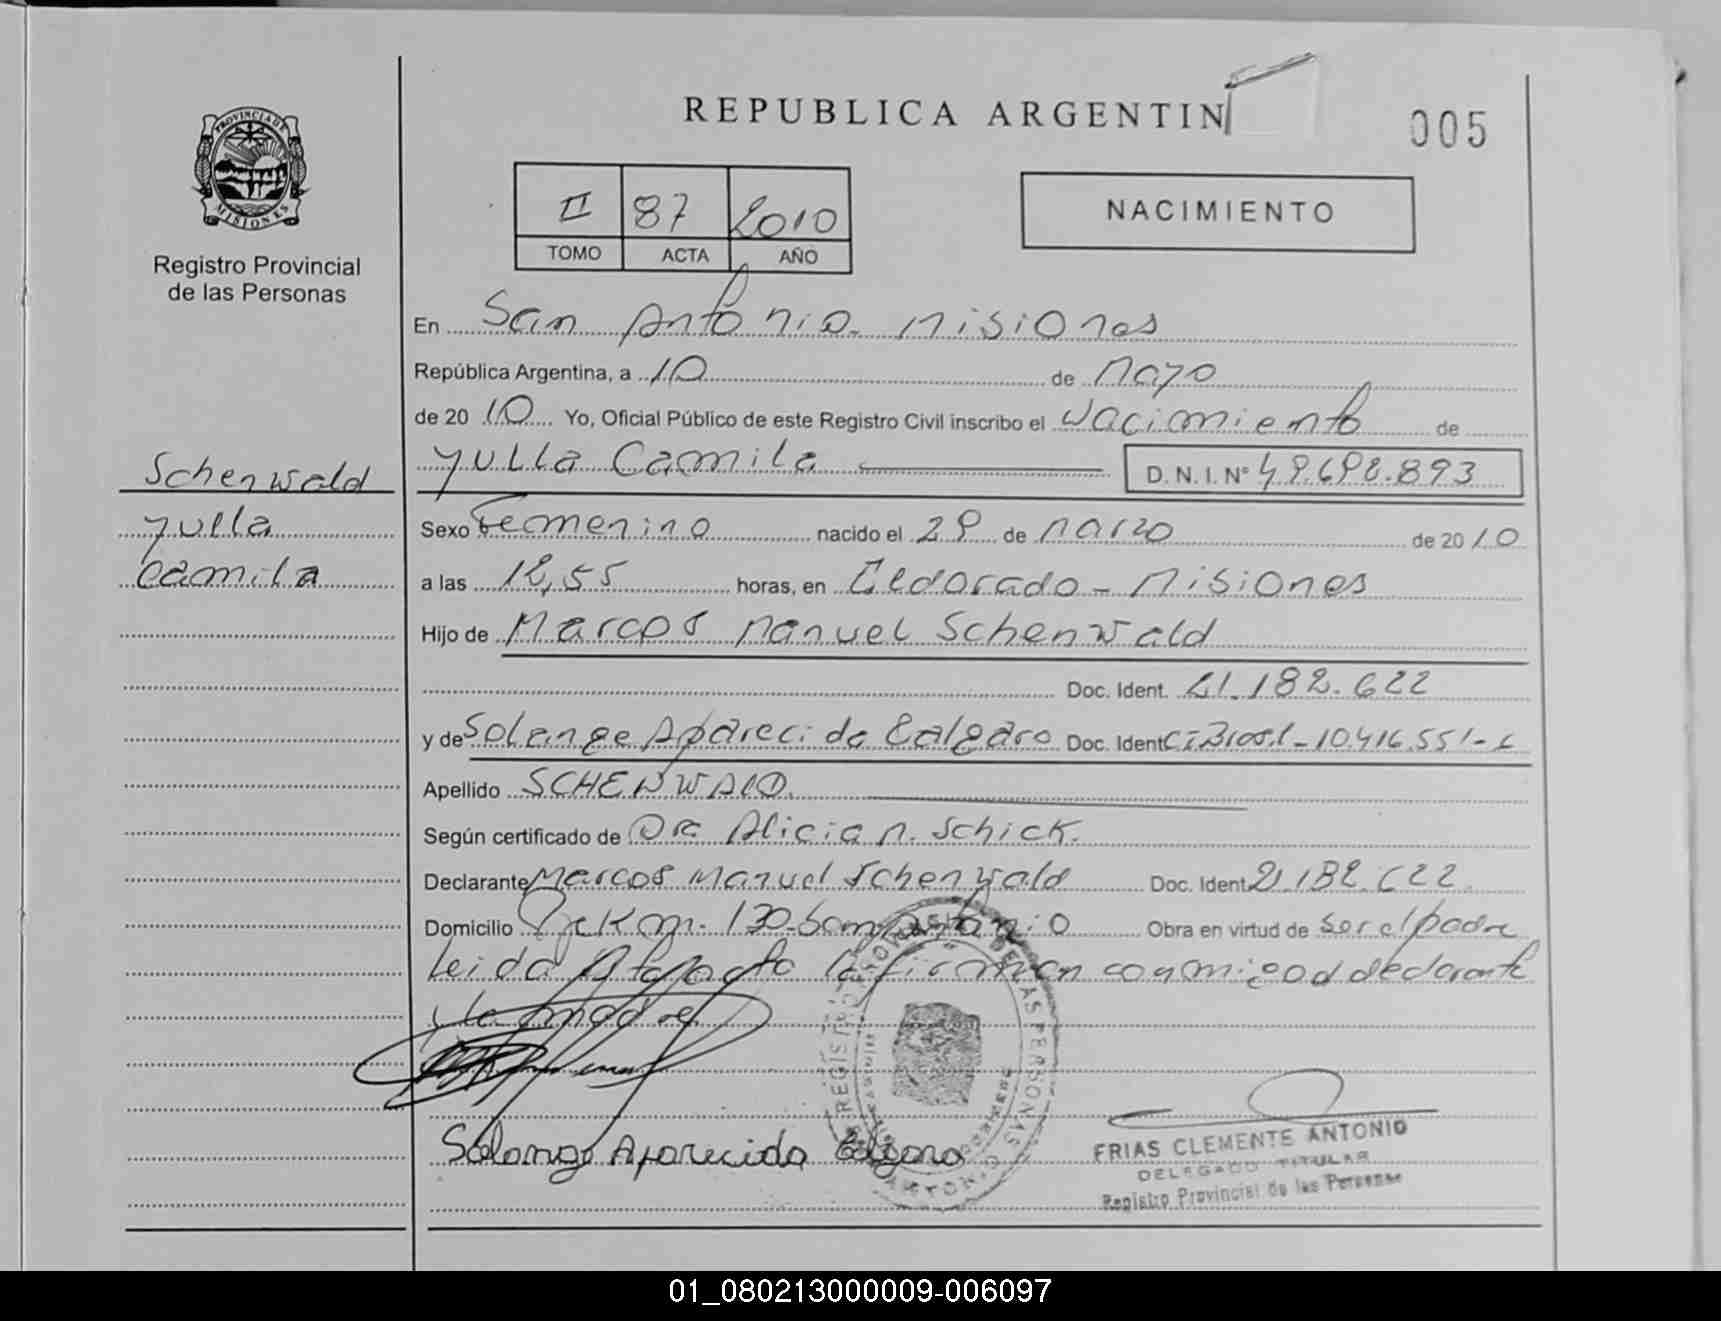 REPUBLICA ARGENTIN
005
PROVINCIA DE
MISIONES
Registro Provincial
de las Personas
II 87 2010
TOMO ACTA AÑO
NACIMIENTO
En San Antonio - Misiones
República Argentina, a 10 de Mayo
de 2010 Yo, Oficial Público de este Registro Civil inscribo el Nacimiento de
Yulla Camila D.N.I.Nº 49.698.893
Schenwald
Yulla
Camila
Sexo Femenino nacido el 29 de Marzo de 2010
a las 12,55 horas, en Eldorado - Misiones
Hijo de Marcos Manuel Schenwald
Doc. Ident. 21.182.622
y de Solange Aparecida Calgaro Doc. Ident C.I. Brasil - 10.416.551-
Apellido SCHENWALD.
Según certificado de Dra Alicia M. Schick.
Declarante Marcos Manuel Schenwald Doc. Ident 21.182.622
Domicilio Km. 130 - San Antonio Obra en virtud de Ser el padre
Leida el acta la firman conmigo el declarante
y la madre
Solange Aparecida Calgaro
REGISTRO PROVINCIAL DE LAS PERSONAS
FRIAS CLEMENTE ANTONIO
DELEGADO TITULAR
Registro Provincial de las Personas
01_080213000009-006097